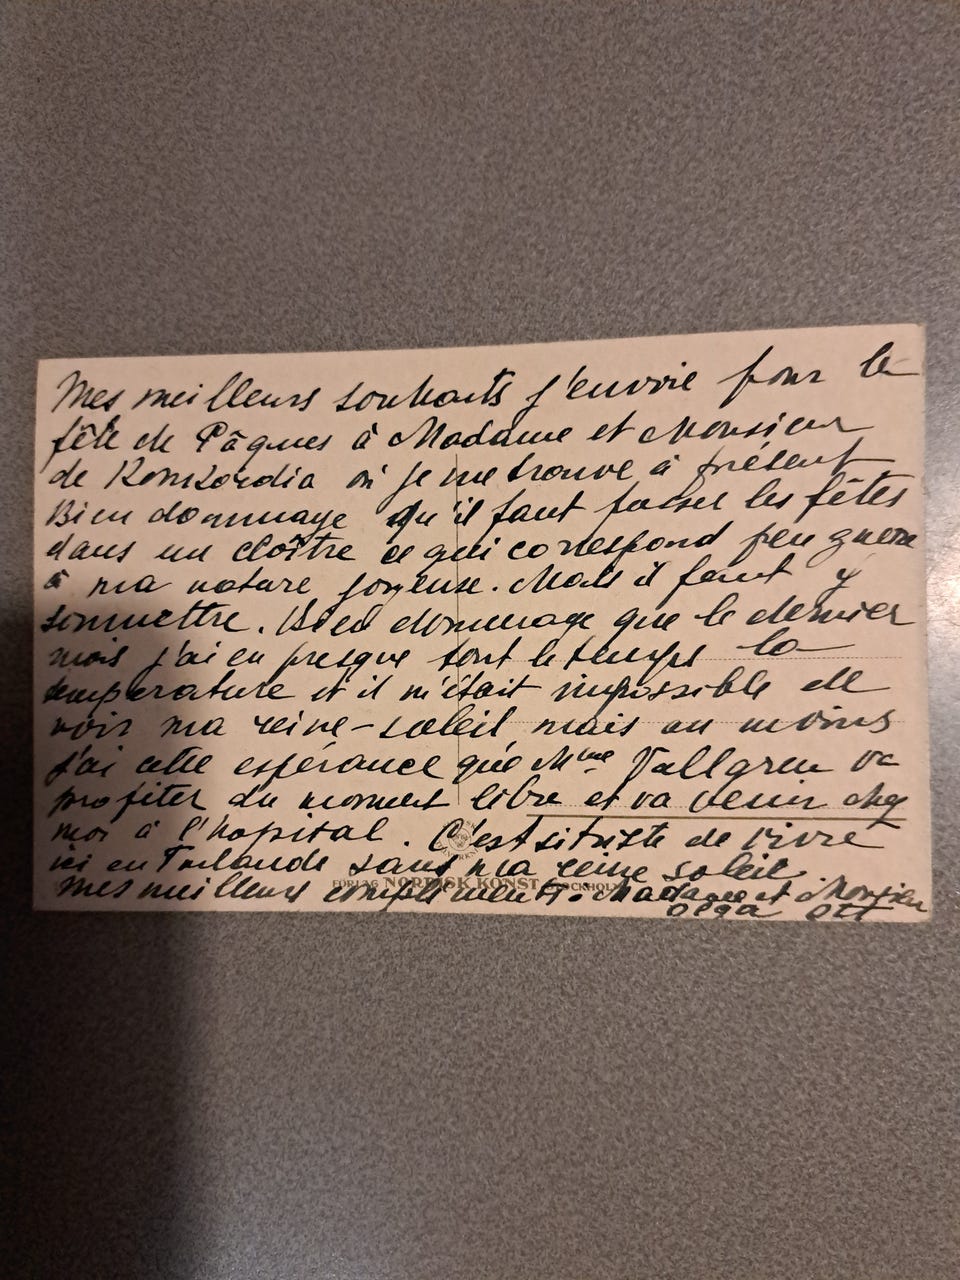 Mes meilleurs souhaits j'envoie pour la
fête de Pâques à Madame et Monsieur
de Konkordia où je me trouve à présent
Bien dommage qu'il faut passer les fêtes
dans un cloître ce qui correspond peu guère
à ma nature joyeuse. Mais il faut y
soumettre. Bien dommage que le dernier
mois j'ai eu presque tout le temps la
température et il m'était impossible de
voir ma reine-soleil mais au moins
j'ai cette espérance que Mme Vallgren va
profiter du moment libre et va venir chez
moi à l'hopital. C'est si triste de vivre
ici en Finlande sans ma reine soleil.
FÖRLAG NORDISK KONST STOCKHOLM
Mes meilleurs compliments. Madame et Monsieur
Olga Ott